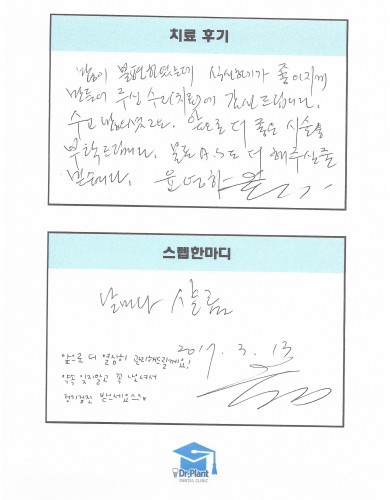 치료 후기
많이 불편하였는데 식사하기가 좋아지게
만들어 주신 수리(치료)에 감사드립니다.
수고 많으셨고요. 앞으로 더 좋은 시술을
부탁드립니다. 물론 A.S도 더 해주실줄
믿습니다.
스텝한마디
날마다 샬롬
2017. 3. 13
앞으로 더 열심히 관리해드릴게요!
약속 잊지말고 꼭 나오셔서
정기검진 받으세요~
Dr.Plant
DENTAL CLINIC